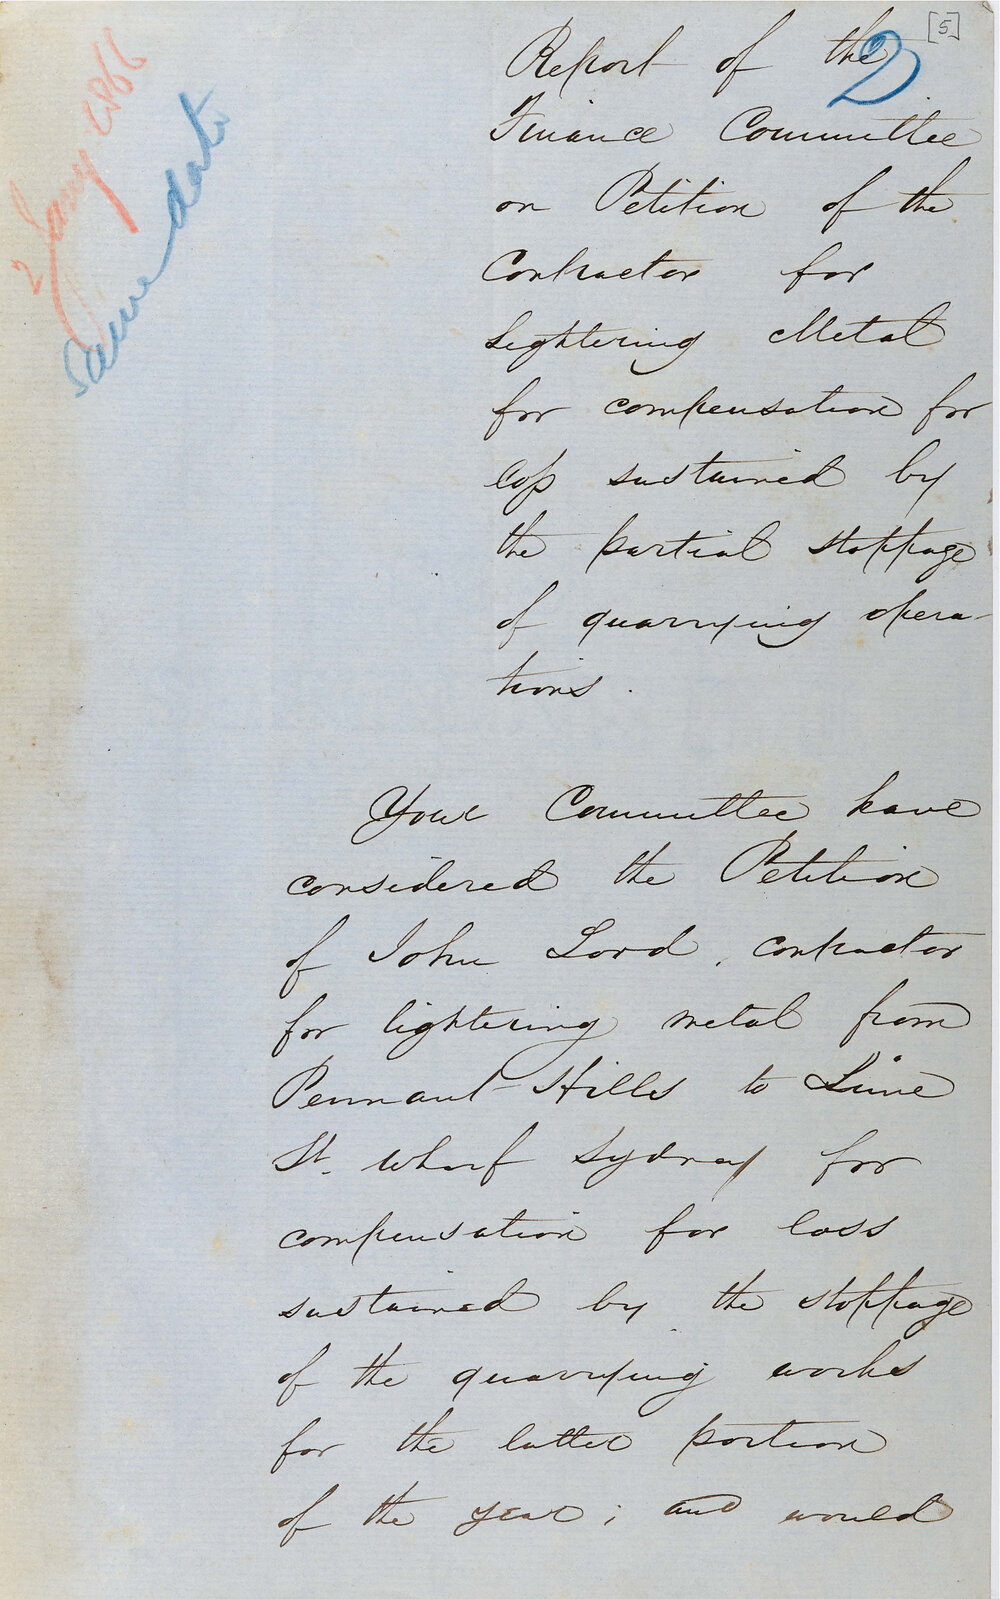 [5]
2
2 Jany 1866
Same date
Report of the
Finance Committee
on Petition of the
Contractor for
Lightering Metal
for compensation for
loss sustained by
the partial stoppage
of quarrying opera-
tions.
Your Committee have
considered the Petition
of John Lord, contractor
for lightering metal from
Pennant Hills to Lime
St. Wharf Sydney for
compensation for loss
sustained by the stoppage
of the quarrying works
for the latter portion
of the year; and would